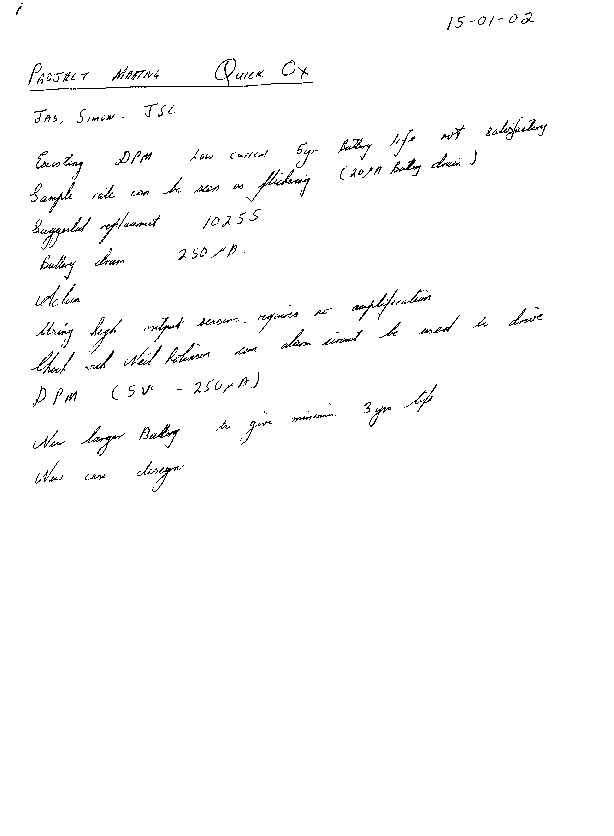 15-01-02
PROJECT MEETING QUICK OX
JAS, SIMON. JSL
Existing DPM Low current 5yr Battery life not satisfactory
Sample rate can be seen as flickering (20µA Battery drain)
Suggested replacement 1025S
Battery drain 250µA.
Action
Using high output sensor. requires no amplification
Check with Neil Robinson can alarm circuit be used to drive
DPM (5V - 250µA)
New larger Battery to give minimum 3 yrs life
New case design